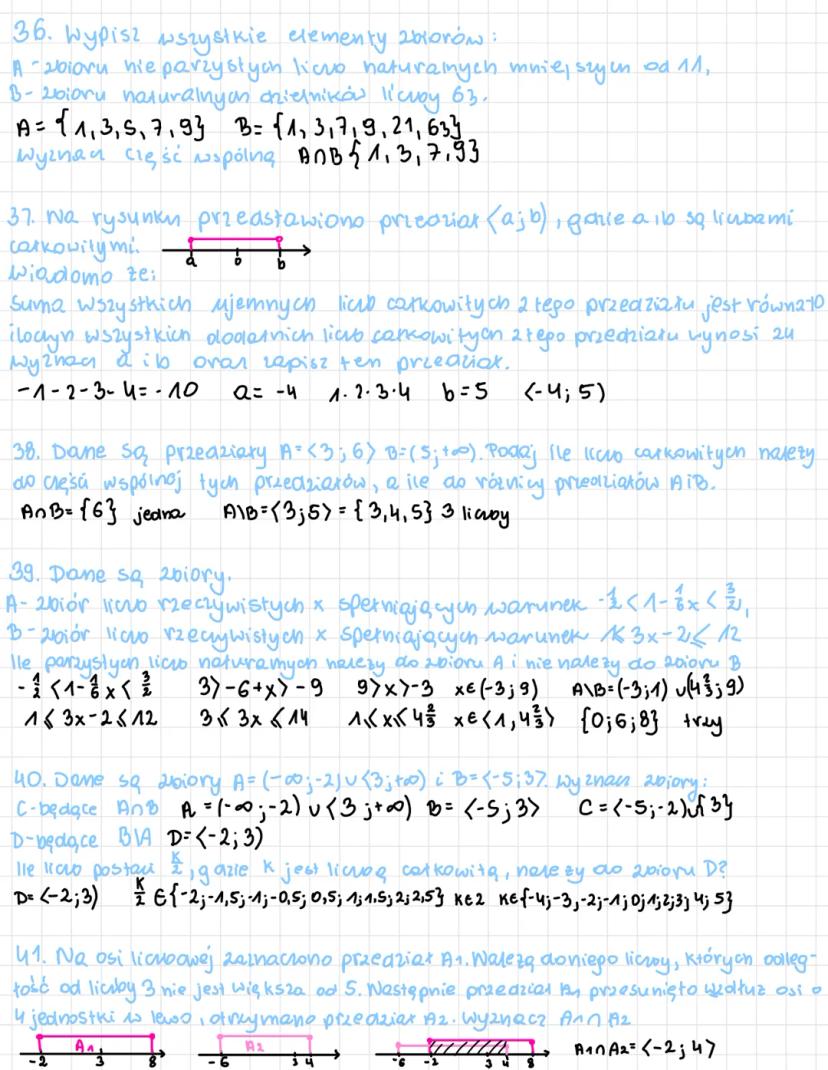 36. Wypisz wszystkie elementy zbiorów:
A - zbioru nieparzystych liczb naturalnych mniejszych od 11,
B - zbioru naturalnych dzielników liczby 63.
A = {1,3,5,7,9} B = {1,3,7,9,21,63}
Wyznacz część wspólną A∩B {1,3,7,9}
37. Na rysunku przedstawiono przedział ⟨a;b), gdzie a i b są liczbami
całkowitymi.
a 0 b
Wiadomo że:
Suma wszystkich ujemnych liczb całkowitych z tego przedziału jest równa -10
iloczyn wszystkich dodatnich liczb całkowitych z tego przedziału wynosi 24
Wyznacz a i b oraz zapisz ten przedział.
-1-2-3-4=-10 a= -4 1·2·3·4 b=5 ⟨-4; 5)
38. Dane są przedziały A=⟨3;6⟩ B=(5;+∞). Podaj ile liczb całkowitych należy
do części wspólnej tych przedziałów, a ile do różnicy przedziałów A i B.
A∩B={6} jedna A\B=⟨3;5⟩ = {3,4,5} 3 liczby
39. Dane są zbiory.
A - zbiór liczb rzeczywistych x spełniających warunek -1/2<1-1/6x<3/2,
B - zbiór liczb rzeczywistych x spełniających warunek 1≤3x-2≤12
Ile parzystych liczb naturalnych należy do zbioru A i nie należy do zbioru B
-1/2<1-1/6x<3/2 3>-6+x>-9 9>x>-3 x∈(-3;9) A\B=(-3;1)∪(4 2/3;9)
1≤3x-2≤12 3≤3x≤14 1≤x≤4 2/3 x∈⟨1,4 2/3⟩ {0;6;8} trzy
40. Dane są zbiory A=(-∞;-2)∪⟨3;+∞) i B=⟨-5;3⟩. Wyznacz zbiory:
C-będące A∩B A=(-∞;-2)∪⟨3;+∞) B=⟨-5;3⟩ C=⟨-5;-2)∪{3}
D-będące B\A D=⟨-2;3)
Ile liczb postaci K/2, gdzie K jest liczbą całkowitą, należy do zbioru D?
D=⟨-2;3) K/2 ∈{-2;-1,5;-1;-0,5; 0,5; 1;1,5;2;2,5} K∈Z K∈{-4;-3,-2;-1;0;1;2;3;4;5}
41. Na osi liczbowej zaznaczono przedział A1. Należą do niego liczby, których odleg-
łość od liczby 3 nie jest większa od 5. Następnie przedział A1 przesunięto wzdłuż osi o
4 jednostki w lewo, otrzymano przedział A2. Wyznacz A1∩A2
A1 A2 A1∩A2=⟨-2;4⟩
-2 3 8 -6 3 4 -6 -2 3 4 8